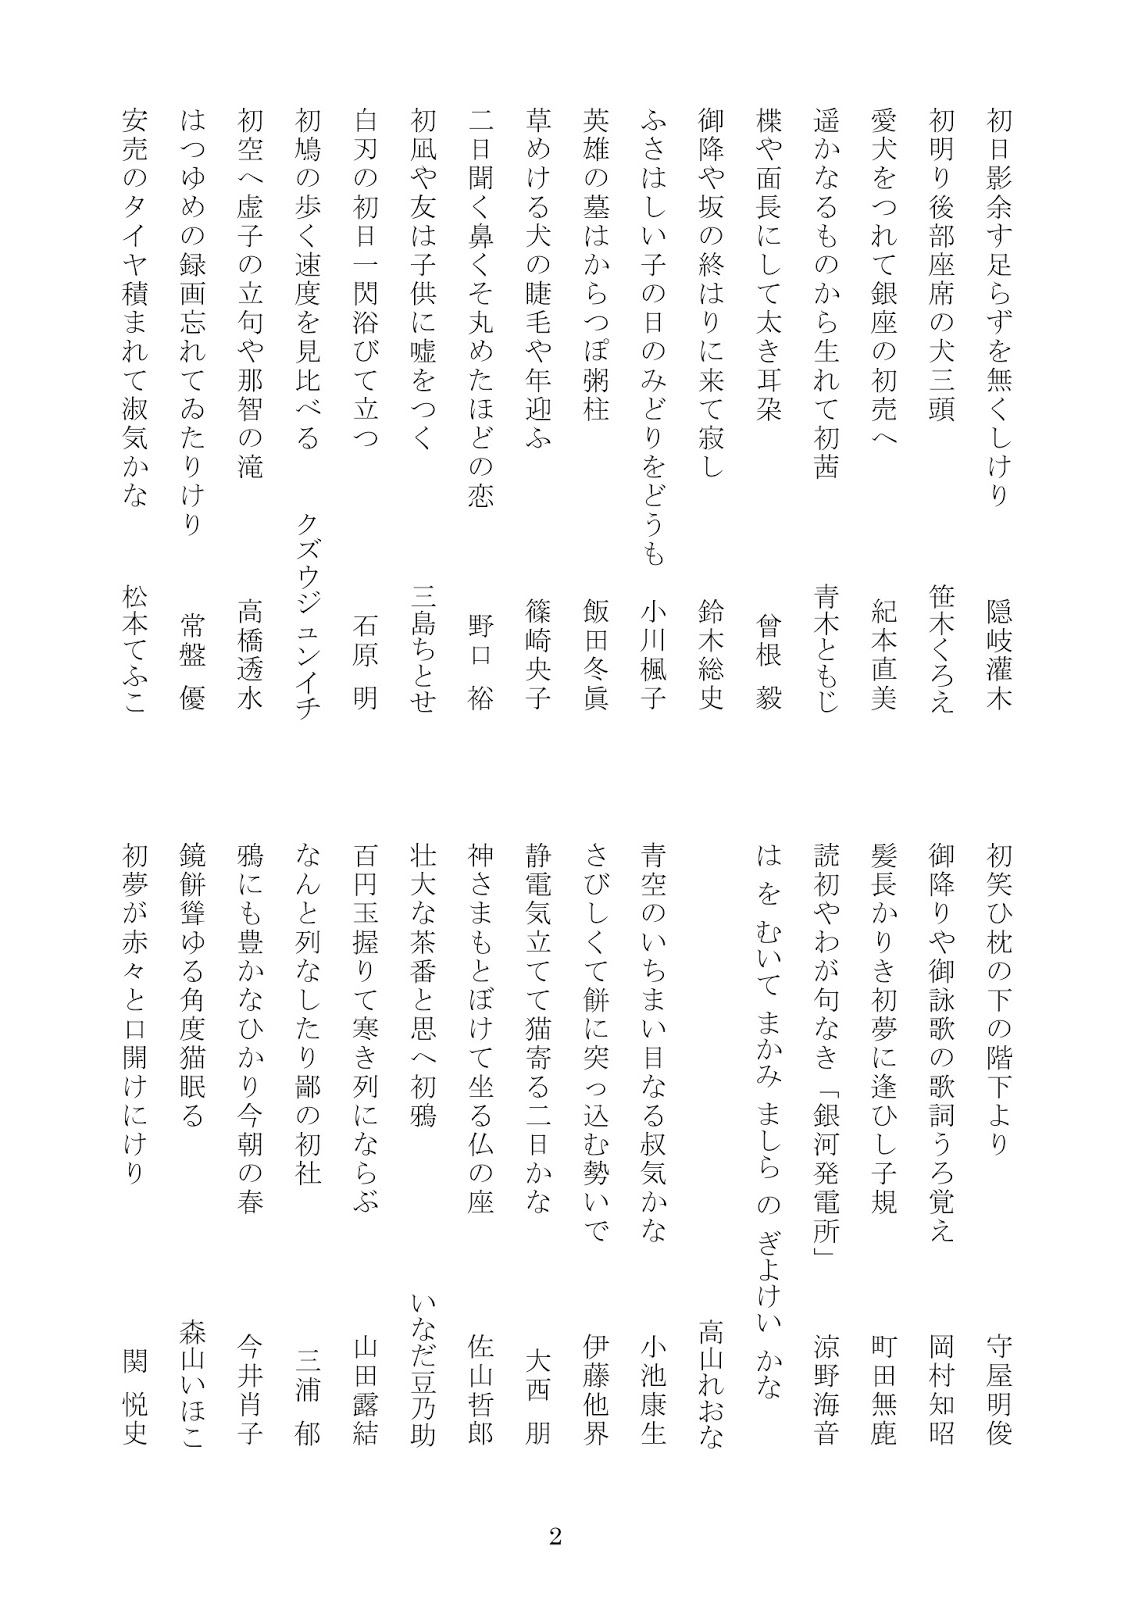 初日影余す足らずを無くしけり　隠岐灌木
初明り後部座席の犬三頭　笹木くろえ
愛犬をつれて銀座の初売へ　紀本直美
遥かなるものから生れて初茜　青木ともじ
楪や面長にして太き耳朶　曾根　毅
御降や坂の終はりに来て寂し　鈴木総史
ふさはしい子の日のみどりをどうも　小川楓子
英雄の墓はからつぽ粥柱　飯田冬眞
草めける犬の睫毛や年迎ふ　篠崎央子
二日聞く鼻くそ丸めたほどの恋　野口　裕
初凪や友は子供に嘘をつく　三島ちとせ
白刃の初日一閃浴びて立つ　石原　明
初鳩の歩く速度を見比べる　クズウジュンイチ
初空へ虚子の立句や那智の滝　高橋透水
はつゆめの録画忘れてゐたりけり　常盤　優
安売のタイヤ積まれて淑気かな　松本てふこ
初笑ひ枕の下の階下より　守屋明俊
御降りや御詠歌の歌詞うろ覚え　岡村知昭
髪長かりき初夢に逢ひし子規　町田無鹿
読初やわが句なき「銀河発電所」　涼野海音
は を むいて まかみ ましら の ぎよけい かな
高山れおな
青空のいちまい目なる叔気かな　小池康生
さびしくて餅に突っ込む勢いで　伊藤他界
静電気立てて猫寄る二日かな　大西　朋
神さまもとぼけて坐る仏の座　佐山哲郎
壮大な茶番と思へ初鴉　いなだ豆乃助
百円玉握りて寒き列にならぶ　山田露結
なんと列なしたり鄙の初社　三浦　郁
鴉にも豊かなひかり今朝の春　今井肖子
鏡餅聳ゆる角度猫眠る　森山いほこ
初夢が赤々と口開けにけり　関　悦史
2